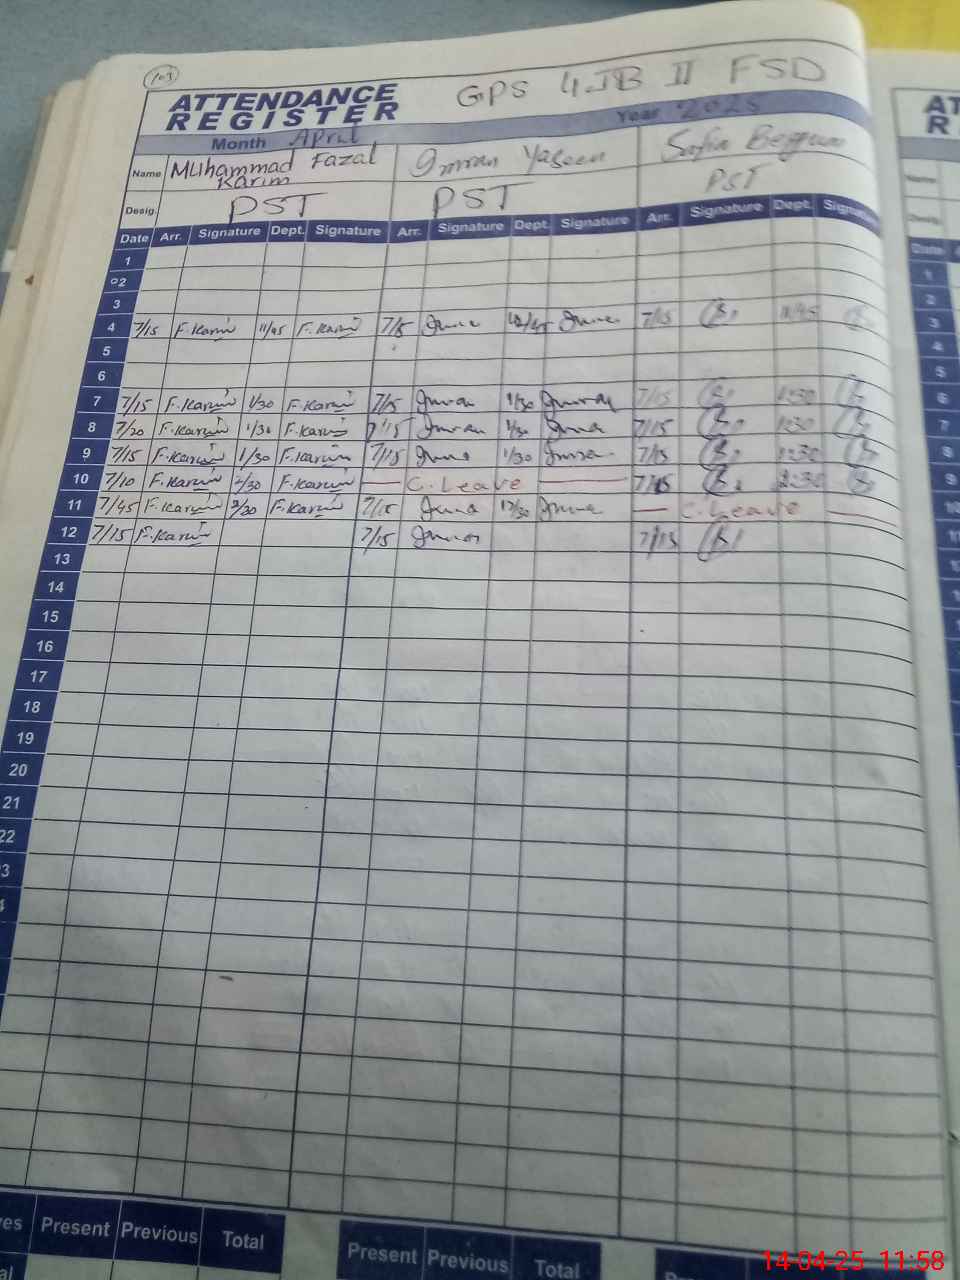 103
ATTENDANCE GPS 4JB II FSD
REGISTER Year 2025
Month April
Name Muhammad Fazal Karim Imran Yaseen Safia Begum
Desig. PST PST PST
Date Arr. Signature Dept. Signature Arr. Signature Dept. Signature Arr. Signature Dept. Signature
1
2
3
4 7/15 F.Karim 11/45 F.Karim 7/15 Imran Imran 7/15 11/45
5
6
7 7/15 F.Karim 1/30 F.Karim 7/15 Imran 1/30 Imran 7/15 1:30
8 7/20 F.Karim 1/30 F.Karim 7/15 Imran 1/30 Imran 7/15 1:30
9 7/15 F.Karim 1/30 F.Karim 7/15 Imran 1/30 Imran 7/15 1:30
10 7/10 F.Karim 2/30 F.Karim C. Leave 7/15 2:30
11 7/45 F.Karim F.Karim 7/15 Imran 12/30 Imran C. Leave
12 7/15 F.Karim 7/15 Imran 7/15
13
14
15
16
17
18
19
20
21
22
Present Previous Total Present Previous Total
14-04-25 11:58